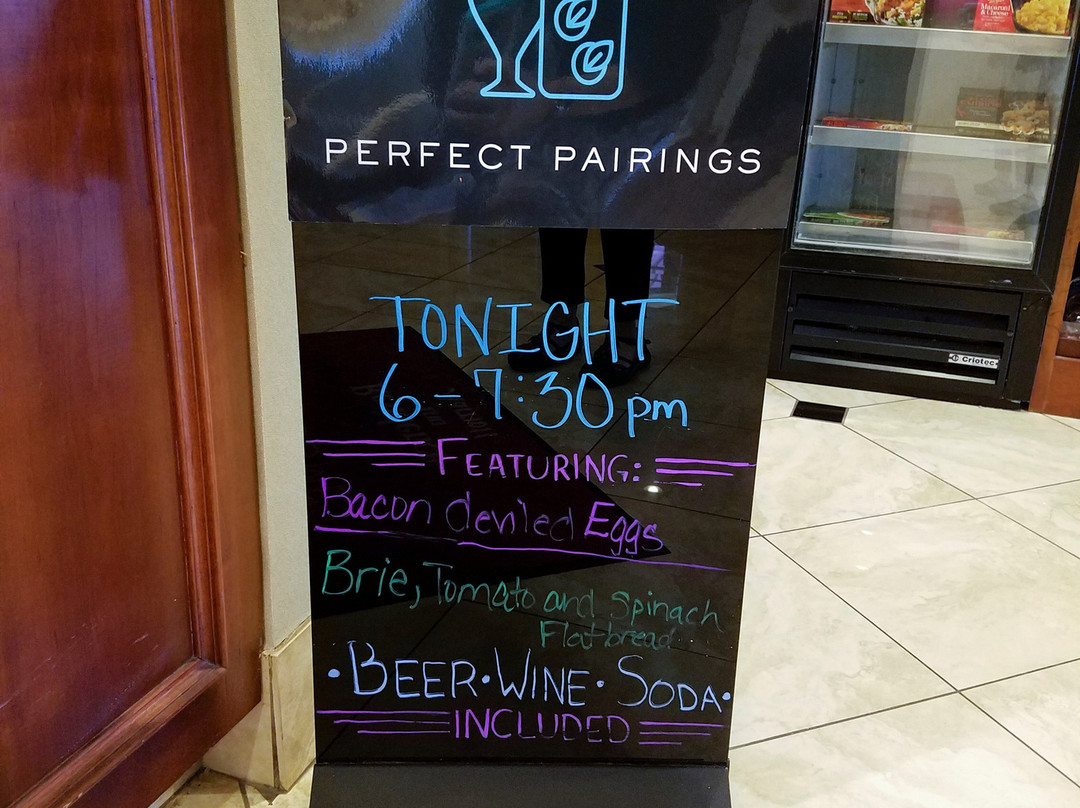 PERFECT PAIRINGS
TONIGHT
6-7:30 pm
FEATURING:
Bacon deviled Eggs
Brie, Tomato and Spinach
Flatbread
•BEER•WINE•SODA•
INCLUDED
Macaroni
& Cheese
Criotec